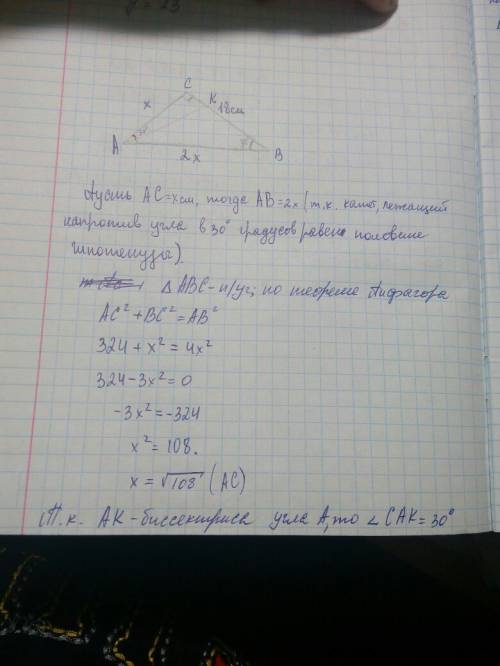 y = 23
C
x
K
18см
A
2x
B
Пусть AC=x см, тогда AB=2x (т.к. катет, лежащий
напротив угла в 30° градусов равен половине
гипотенузы).
Δ ABC - п/уг, по теореме Пифагора
AC² + BC² = AB²
324 + x² = 4x²
324 - 3x² = 0
-3x² = -324
x² = 108.
x = √108 (AC)
Т.к. AK - биссектриса угла A, то ∠CAK = 30°